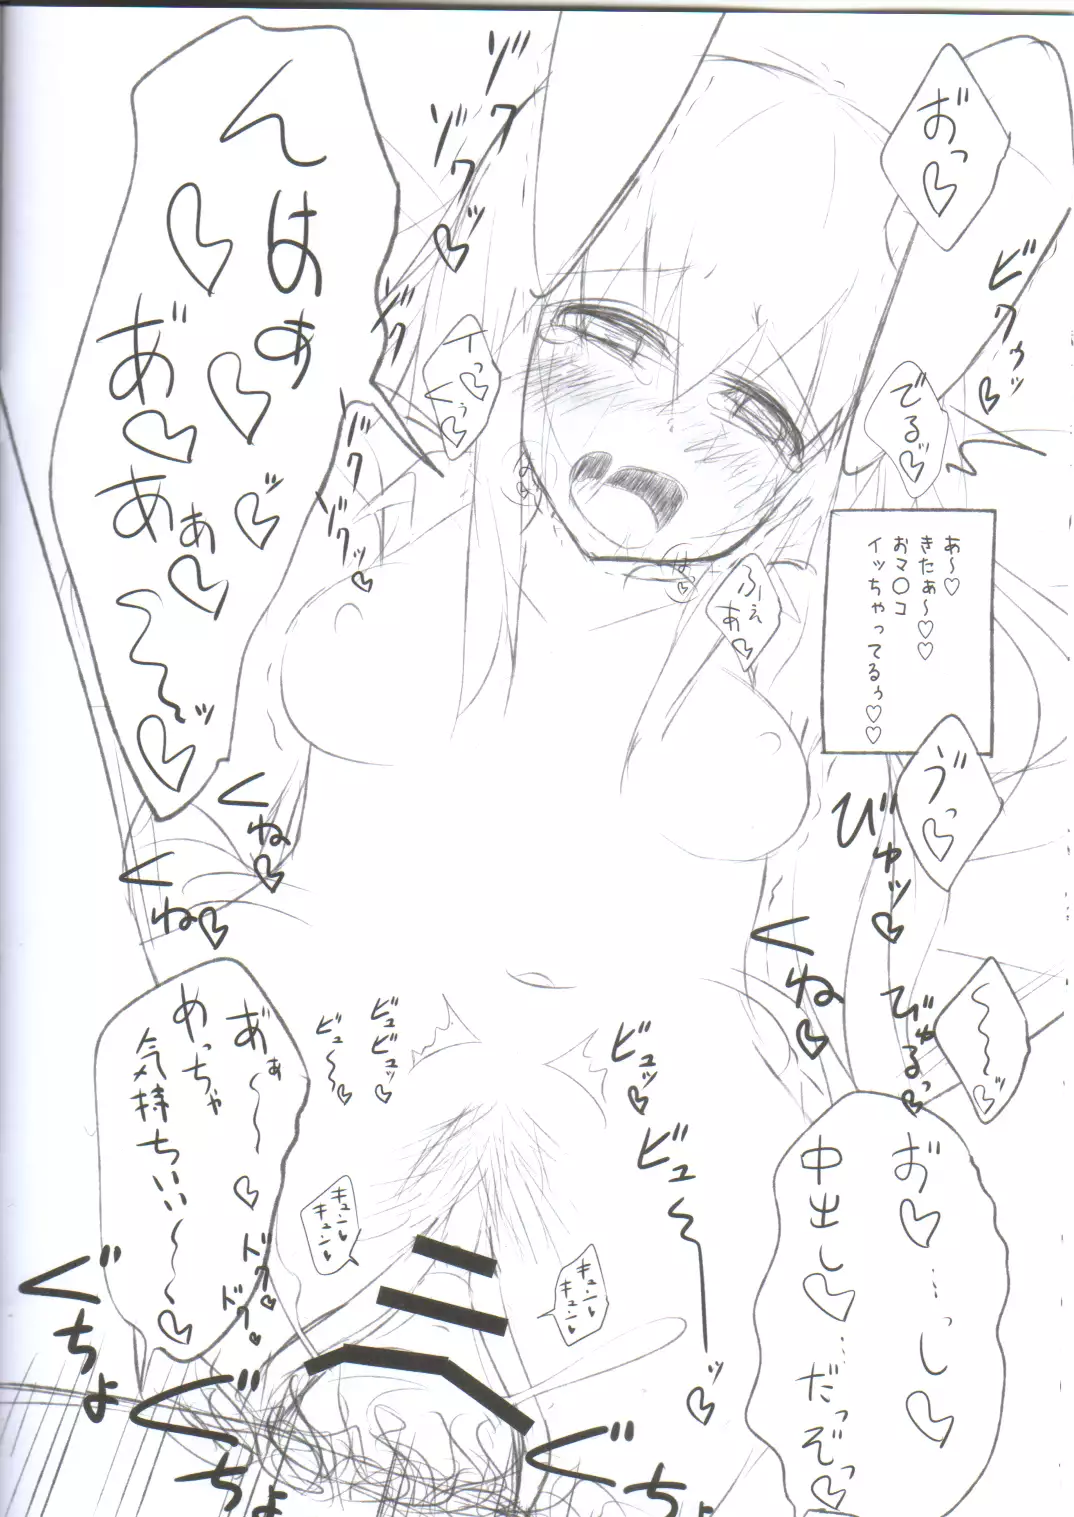 おっ♡
ビクゥッ♡
でるッ♡
あ～♡
きたぁ～♡♡
おマ〇コ
イッちゃってるぅ♡♡
ゾクゾクッ♡
ゾクゾクッ♡
イっ♡くぅ♡
んはぁ♡♡♡
あ゛♡あぁ♡～～ッ♡
は♡
は♡
ふぇあ♡
う゛っ♡
びゅッ♡
びゅるっ♡
くね♡
くね♡
くね♡
～～～ッ♡
ビュッ♡
ビュ～～ッ♡
ビュビュッ♡
ビュ～～♡
あ゛ぁ～～♡
めっちゃ
気持ちいい～～♡
お♡…し♡
中出し♡…だっぞっ♡
キューン♡
キューン♡
キューン♡
キューン♡
ドク♡
ドク♡
ぐちょ
ぐちょ
ぐちょ